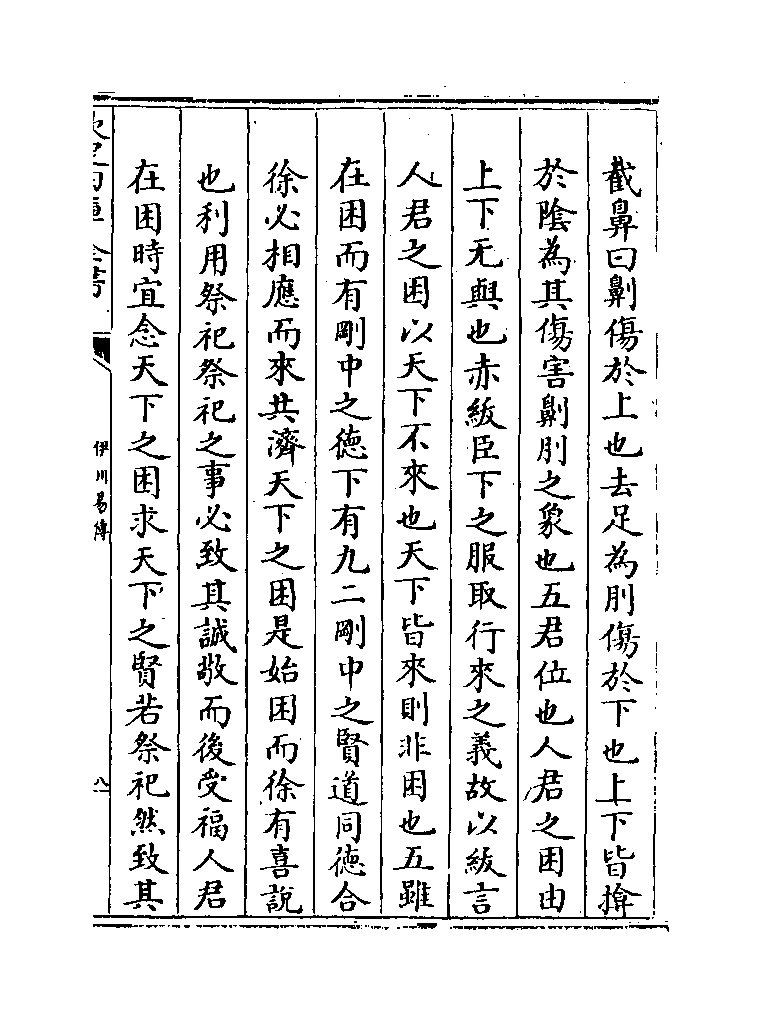 截鼻曰劓傷於上也去足為刖傷於下也上下皆揜
於陰為其傷害劓刖之象也五君位也人君之困由
上下无與也赤紱臣下之服取行來之義故以紱言
人君之困以天下不來也天下皆來則非困也五雖
在困而有剛中之德下有九二剛中之賢道同德合
徐必相應而來共濟天下之困是始困而徐有喜說
也利用祭祀祭祀之事必致其誠敬而後受福人君
在困時宜念天下之困求天下之賢若祭祀然致其
伊川易傳
八